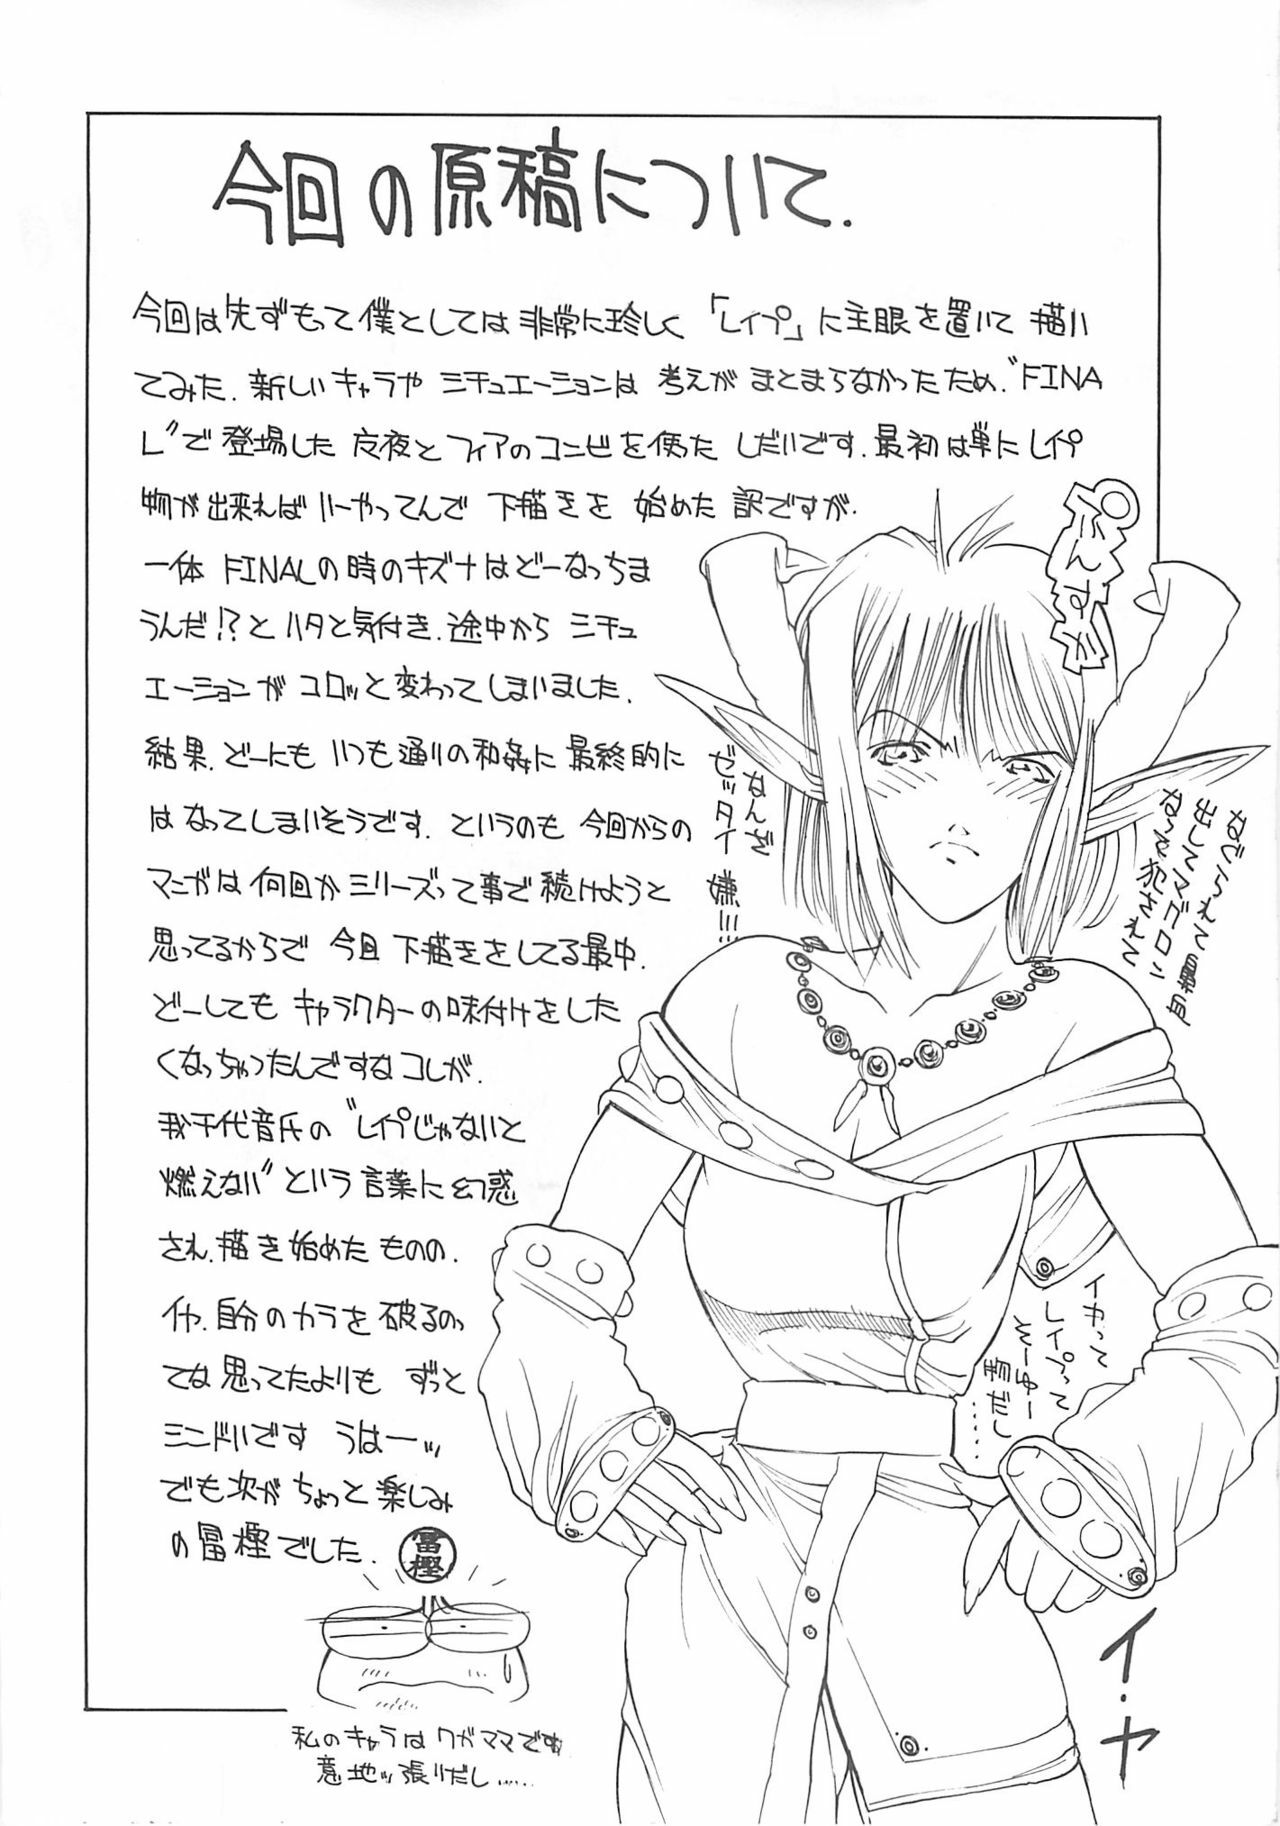 今回の原稿について.
今回は先ずもって僕としては非常に珍しく「レイプ」に主眼を置いて描い
てみた.新しいキャラや シチュエーションは 考えが まとまらなかったため、"FINA
L"で登場した 夜とフィアのコンビを使った しだいです.最初は単にレイプ
物が出来れば いーやってんで 下描きを 始めた 訳ですが.
一体 FINALの時のキズナはどーなっちま
うんだ!?とハタと気付き.途中から シチュ
エーションが コロッと変わってしまいました.
結果.どーにも いつも通りの和姦に 最終的に
は なってしまいそうです.というのも 今回からの
マンガは 何回かシリーズって事で続けようと
思ってるからで 今回 下描きをしてる最中.
どーしても キャラクターの味付けをした
くなっちゃったんですなコレが.
我千代音氏の "レイプじゃないと
燃えない" という 言葉に 幻惑
され.描き始めた ものの.
イヤ.自分のカラを破るのっ
ては 思ってたよりも ずっと
シンドいです うはーッ
でも次が ちょっと楽しみ
の 冨樫でした.
冨樫
私のキャラは ワガママです
意地ッ張りだし……
なんざ
ゼッタイ 嫌!!!
なじられて 白目
出してマグロに
なって犯されて
イカって
レイプって
イ・ヤ